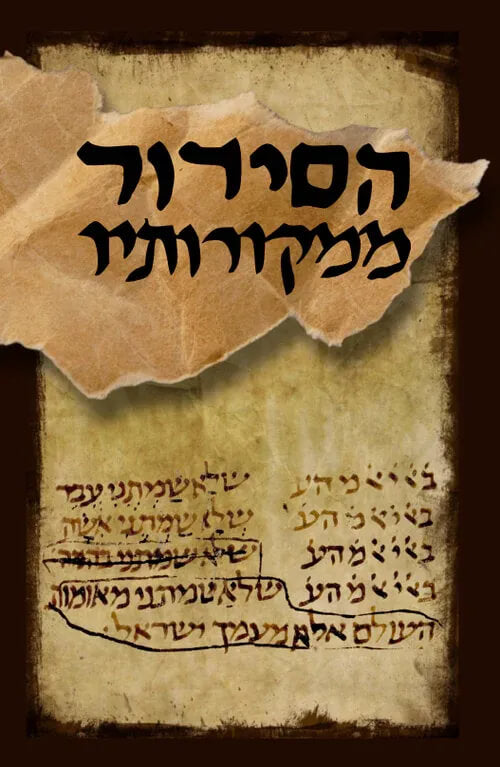 הסידור
ממקורותיו
ב'א'י'א'מ'הע שלא שמתני עבד
ב'א'י'א'מ'הע שלא שמתני אשה
ב'א'י'א'מ'הע שלא שמתני
ב'א'י'א'מ'הע שלא שמתני מאומות
העולם אלא מעמך ישראל